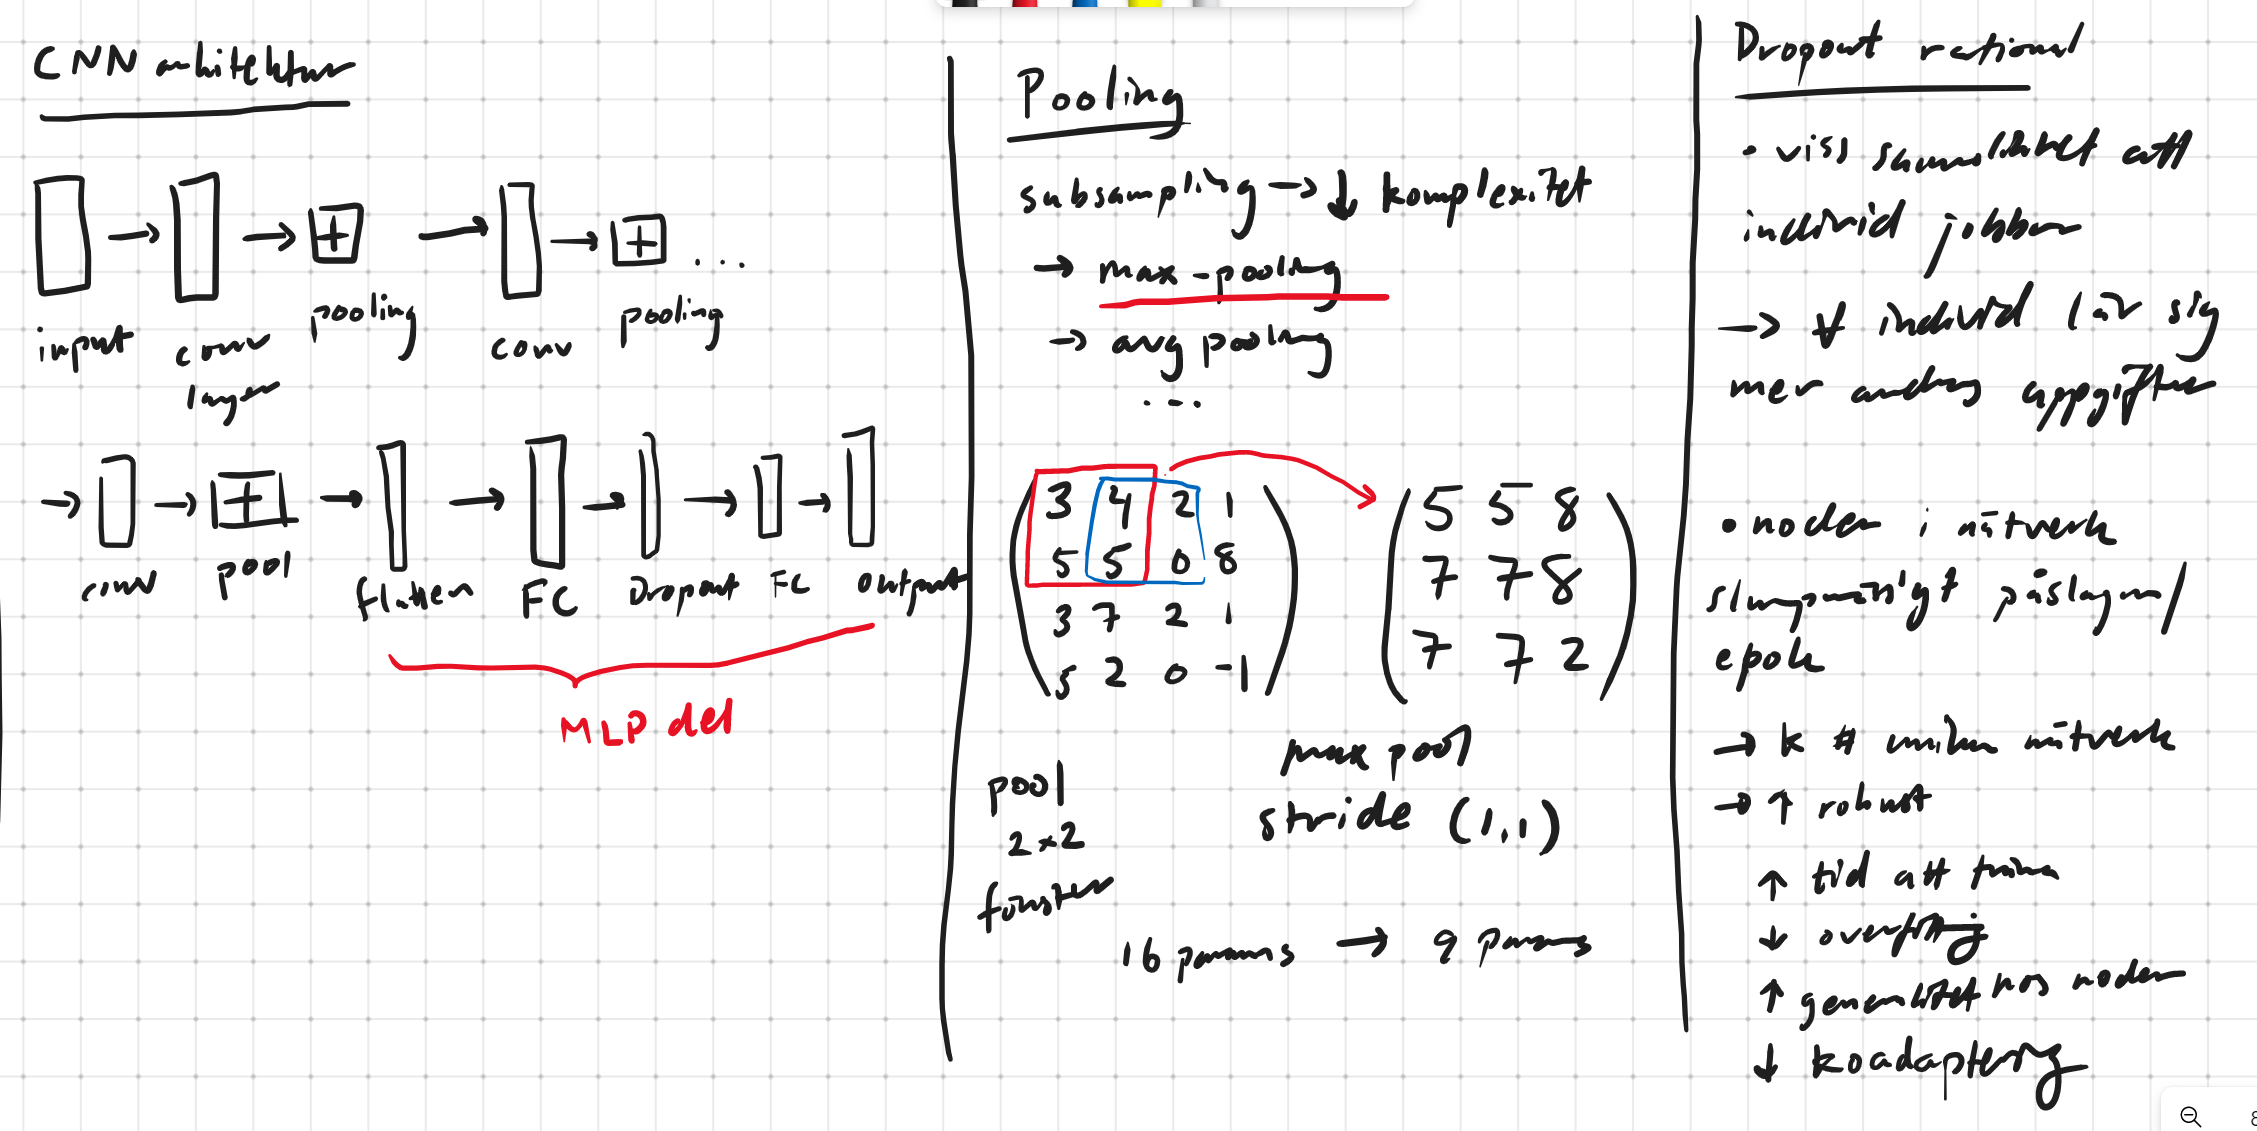 CNN arkitektur
input
conv
layer
pooling
conv
pooling
...
conv
pool
flatten
FC
Dropout
FC
output
MLP del
Pooling
subsampling → ↓ komplexitet
→ max-pooling
→ avg pooling
...
3 4 2 1
5 5 0 8
3 7 2 1
5 2 0 -1
5 5 8
7 7 8
7 7 2
pool
2×2
fönster
max pool
stride (1,1)
16 params → 9 params
Dropout rational
• viss sannolikhet att
individ jobbar
→ ∀ individ lär sig
mer andras uppgifter
• noder i nätverk
slumpmässigt påslagna/
epok
→ k # unika nätverk
→ ↑ robust
↑ tid att träna
↓ overfitting
↑ generalitet hos noder
↓ koadaptering